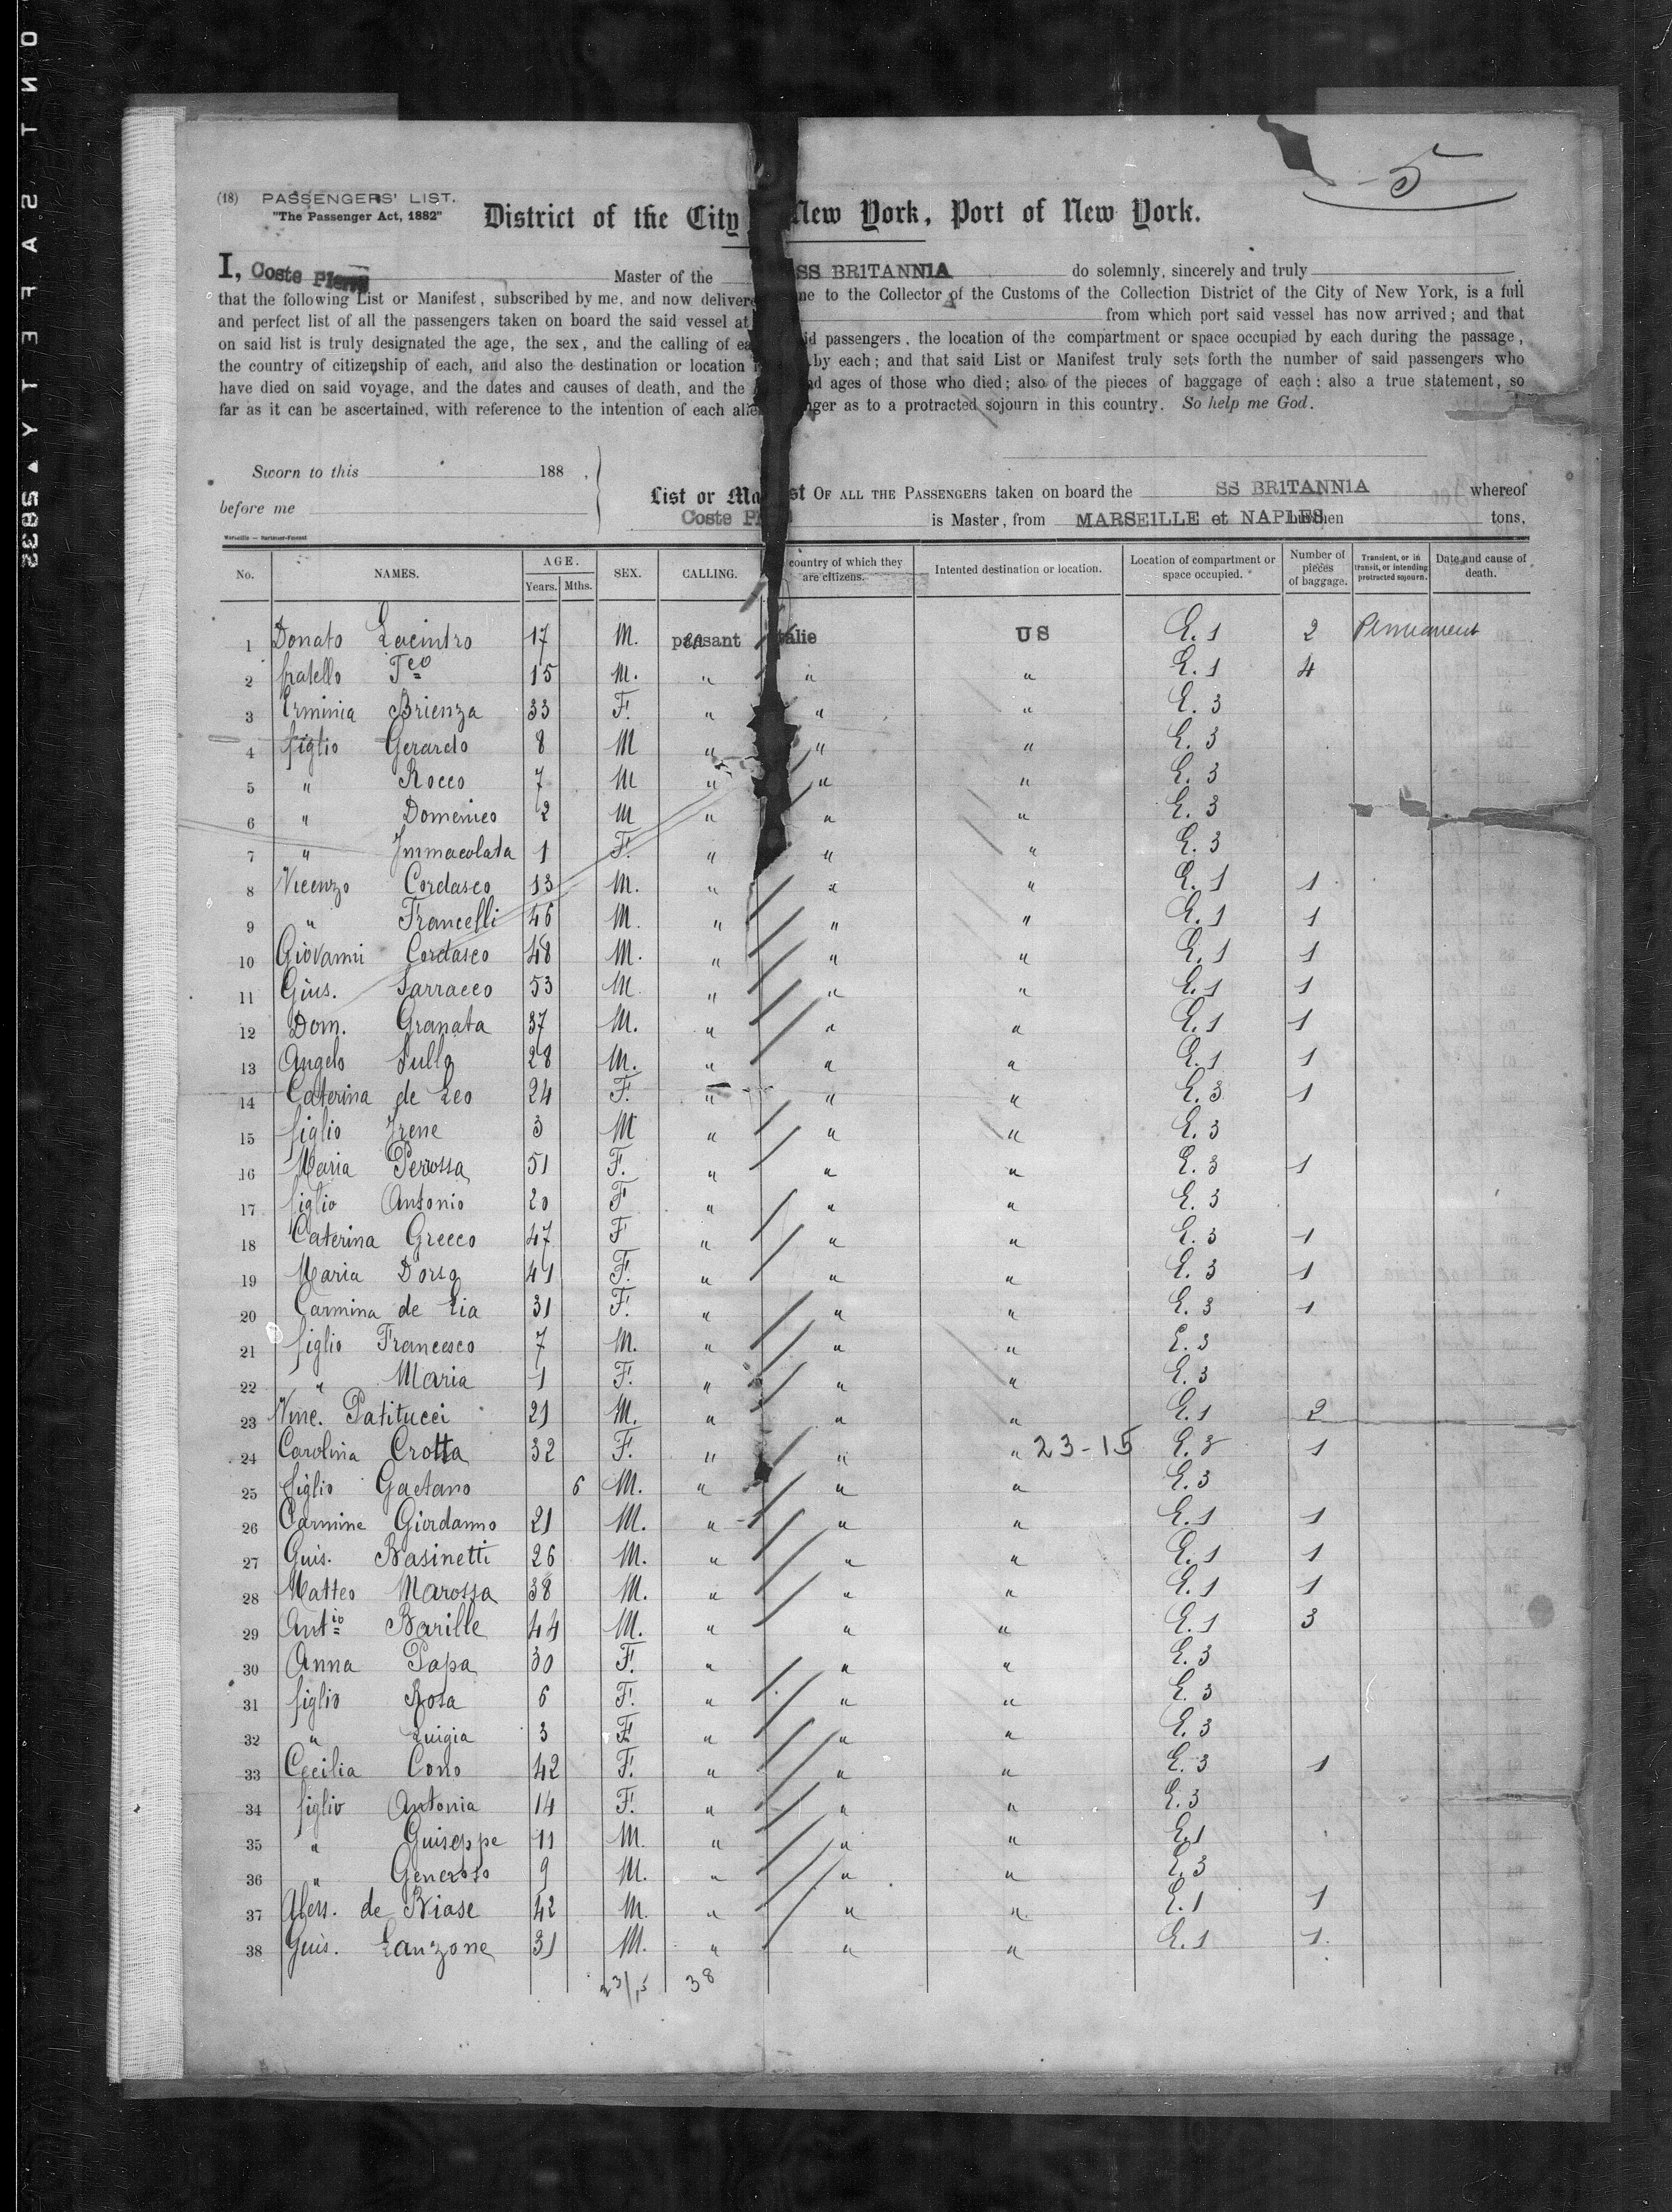 5
(18) PASSENGERS' LIST.
"The Passenger Act, 1882"
District of the City New York, Port of New York.
I, Coste Pierre Master of the SS BRITANNIA do solemnly, sincerely and truly
that the following List or Manifest, subscribed by me, and now delivere me to the Collector of the Customs of the Collection District of the City of New York, is a full
and perfect list of all the passengers taken on board the said vessel at from which port said vessel has now arrived; and that
on said list is truly designated the age, the sex, and the calling of ea id passengers, the location of the compartment or space occupied by each during the passage,
the country of citizenship of each, and also the destination or location by each; and that said List or Manifest truly sets forth the number of said passengers who
have died on said voyage, and the dates and causes of death, and the nd ages of those who died; also of the pieces of baggage of each: also a true statement, so
far as it can be ascertained, with reference to the intention of each alie nger as to a protracted sojourn in this country. So help me God.
Sworn to this 188 ,
before me
List or Ma st OF ALL THE PASSENGERS taken on board the SS BRITANNIA whereof
Coste P is Master, from MARSEILLE et NAPLES burthen tons,
No. NAMES. AGE. Years. Mths. SEX. CALLING. country of which they are citizens. Intented destination or location. Location of compartment or space occupied. Number of pieces of baggage. Transient, or in transit, or intending protracted sojourn. Date and cause of death.
1 Donato Lacintro 17 M. paesant talie US E. 1 2 Permanent
2 fratello Fco 15 M. " " " E. 1 4
3 Erminia Brienza 33 F. " " " E. 3
4 figlio Gerardo 8 M " " " E. 3
5 " Rocco 7 M " " " E. 3
6 " Domenico 2 M " " " E. 3
7 " Immacolata 1 F. " " " E. 3
8 Vicenzo Cordasco 13 M. " " " E. 1 1
9 " Francelli 46 M. " " " E. 1 1
10 Giovanni Cordasco 48 M. " " " E. 1 1
11 Gius. Sarracco 53 M " " " E. 1 1
12 Dom. Granata 37 M. " " " E. 1 1
13 Angelo Sullo 28 M. " " " E. 1 1
14 Caterina de Leo 24 F. " " " E. 3 1
15 figlio Irene 3 M " " " E. 3
16 Maria Perossa 51 F. " " " E. 3 1
17 figlio Antonio 20 F " " " E. 3
18 Caterina Grecco 47 F " " " E. 3 1
19 Maria Dorso 41 F. " " " E. 3 1
20 Carmina de Lia 31 F. " " " E. 3 1
21 figlio Francesco 7 M. " " " E. 3
22 " Maria 1 F. " " " E. 3
23 Vinc. Patitucci 21 M. " " " E. 1 2
24 Carolina Crotta 32 F. " " " 23-15 E. 3 1
25 figlio Gaetano 6 M. " " " E. 3
26 Carmine Giordanno 21 M. " " " E. 1 1
27 Guis. Basinetti 26 M. " " " E. 1 1
28 Matteo Marossa 38 M. " " " E. 1 1
29 Antio Barille 44 M. " " " E. 1 3
30 Anna Papa 30 F. " " " E. 3
31 figlio Rosa 6 F. " " " E. 3
32 " Luigia 3 F. " " " E. 3
33 Cecilia Cono 42 F. " " " E. 3 1
34 figlio Antonia 14 F. " " " E. 3
35 " Guiseppe 11 M. " " " E. 1
36 " Generoso 9 M. " " " E. 3
37 Aless. de Biase 42 M. " " " E. 1 1
38 Guis. Lanzone 31 M. " " " E. 1 1.
23/15 38
Marseille
ON T.SAFETY▲5832